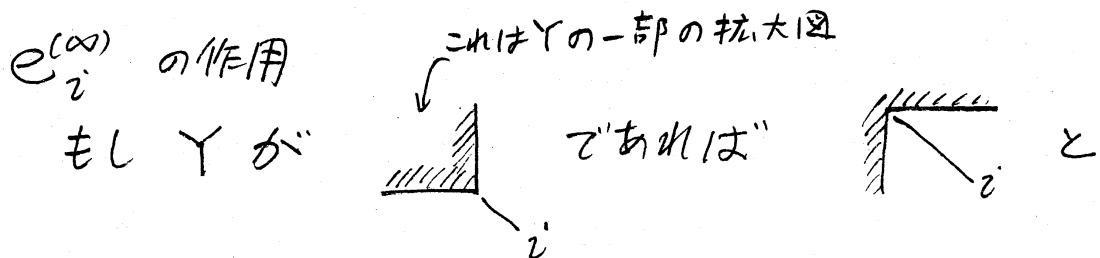 e_i^{(∞)} の作用
これはYの一部の拡大図
もし Y が であれば と
i
i